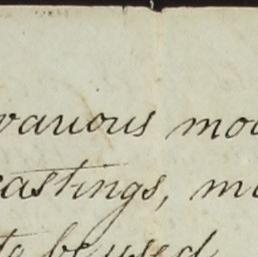 various mo
castings, m
to be used